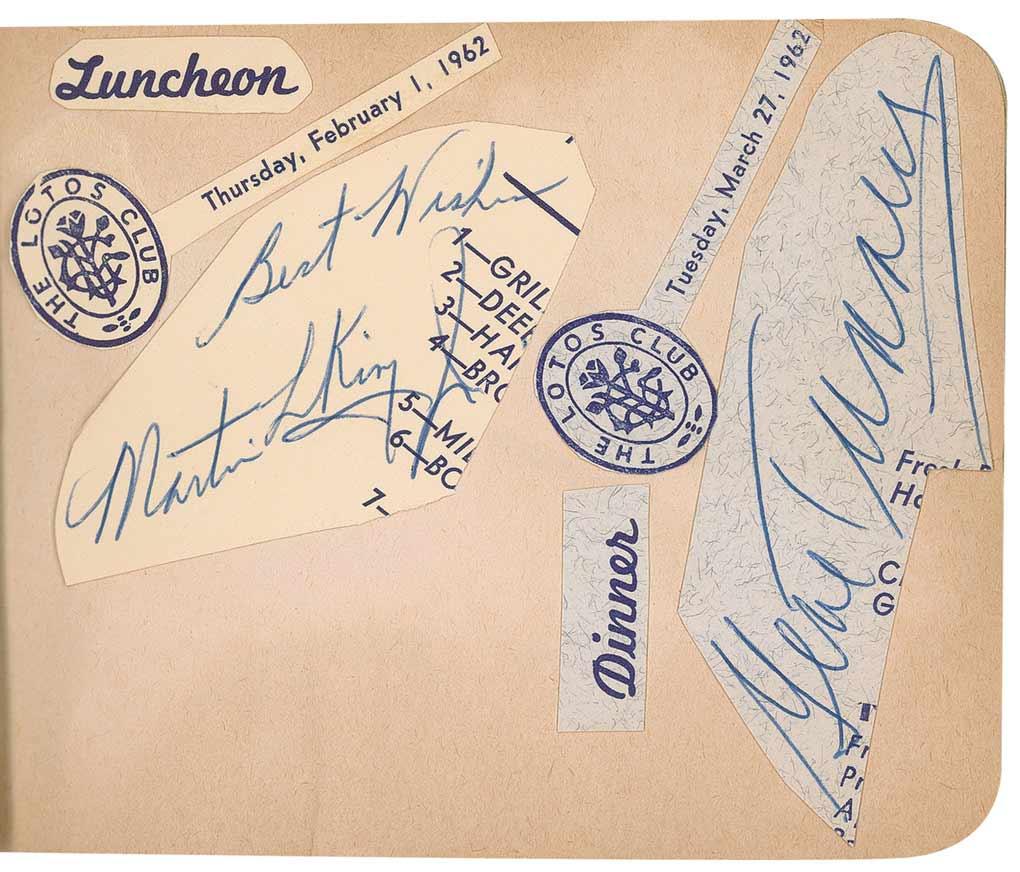 Luncheon
Thursday, February 1, 1962
THE LOTOS CLUB
Best Wishes
Martin L King Jr
1—GRIL
2—DEE
3—HA
4—BRO
5—MI
6—BO
7-
Tuesday, March 27, 1962
THE LOTOS CLUB
Dinner
Gene Tunney
Fre
Ho
C
G
Fr
Pr
A